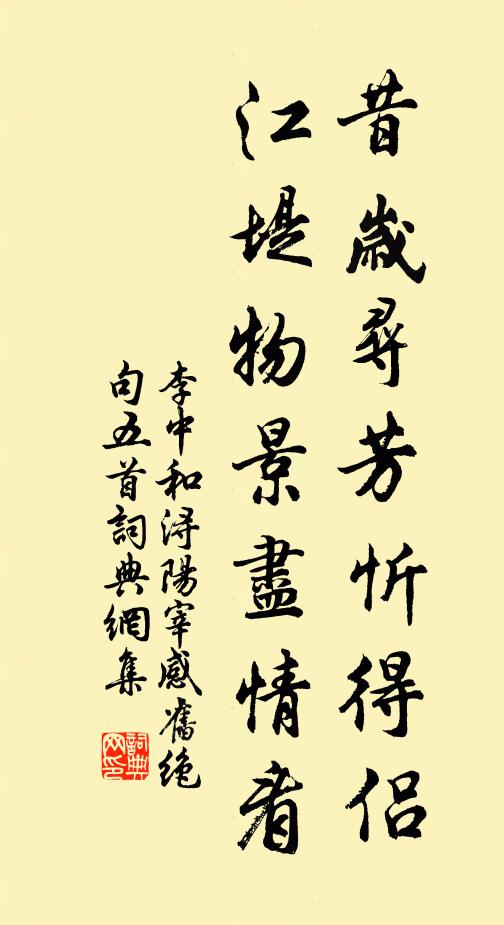 昔歲尋芳忻得侶
江堤物景盡情看
李中和潯陽宰感舊絶
句五首詞典網集
詞典
网印